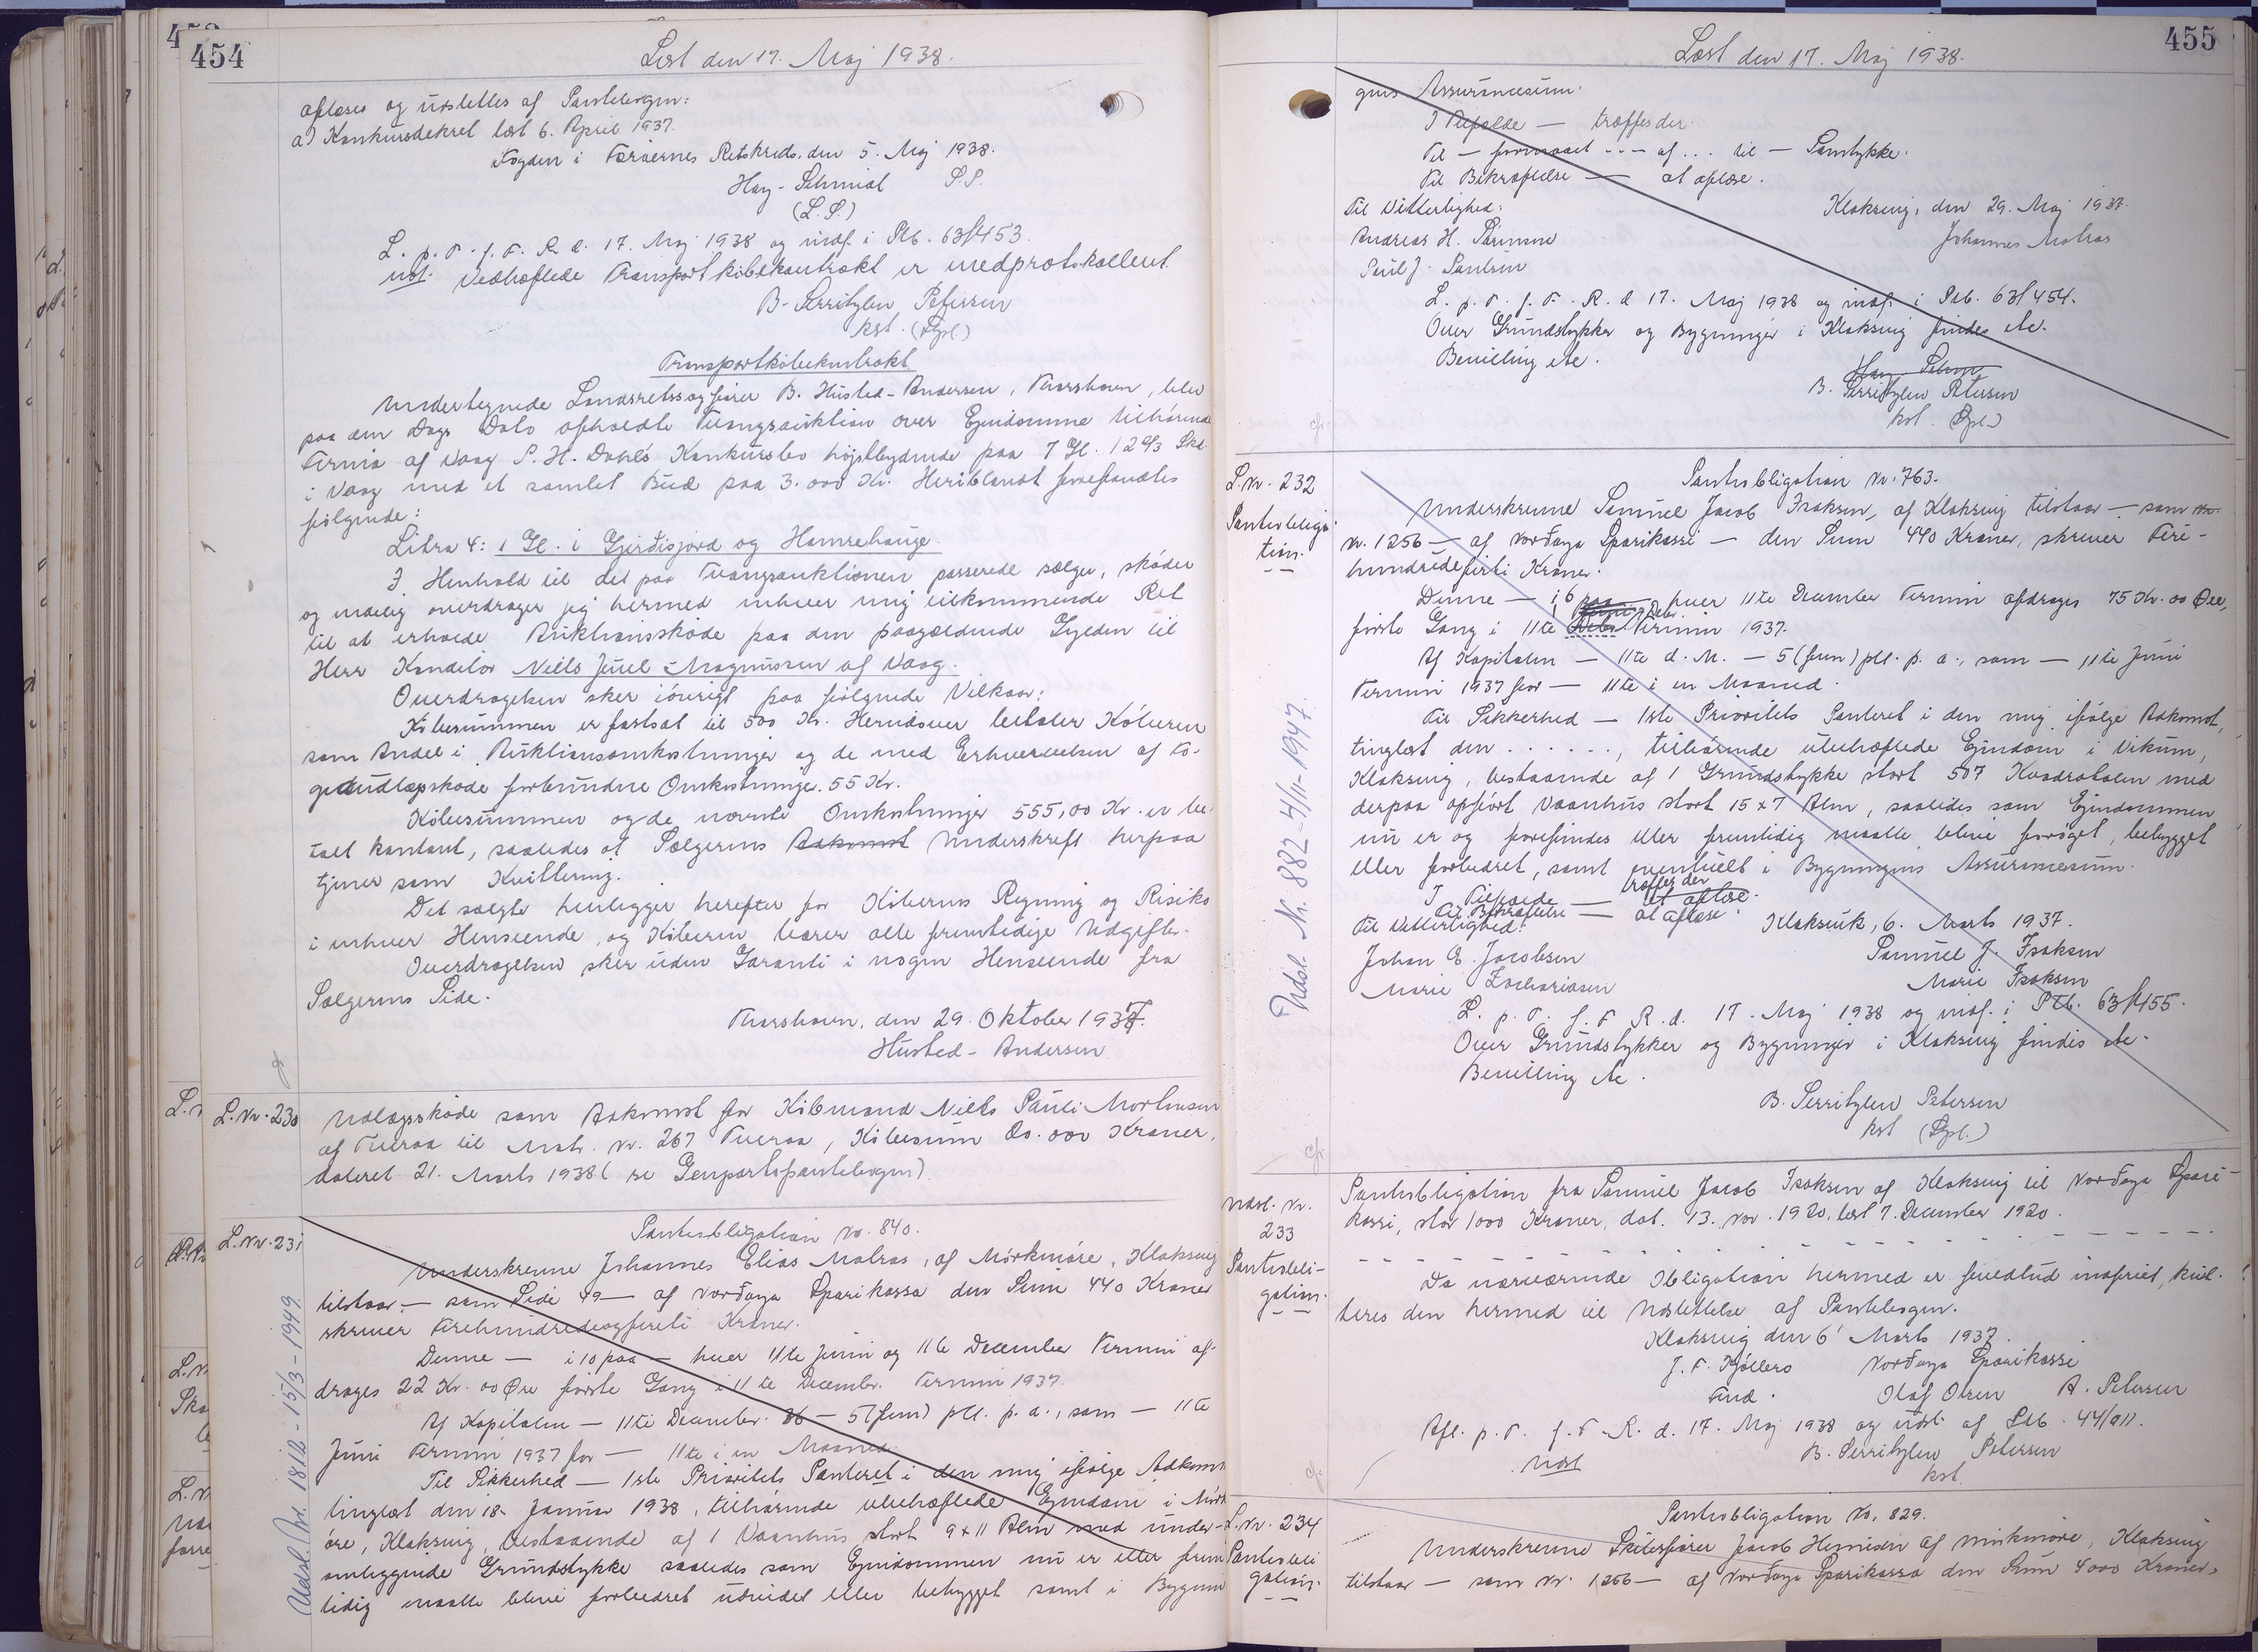 454
Læst den 17. Maj 1938.
aflæses og udslettes af Pantebogen:
a) Konkursdekret læst 6. April 1937.
Fogden i Færøernes Retskreds, den 5. Maj 1938.
Hay-Schmidt S.S.
(L.S.)
L. p. T. f. F. R. d. 17. Maj 1938 og indf. i Ptb. 63/453.
Vedhæftede Transportkøbekontrakt er medprotokolleret.
B. Serritzlew Petersen
kst. (Spl.)
Transportkøbekontrakt
Undertegnede Landsretssagfører B. Husted-Andersen, Thorshavn, blev
paa den Dags Dato afholdte Tvangsauktion over Ejendomme tilhørende
Firma af Vaag P. H. Dahls Konkursbo højstbydende paa 7 Gl. 12 2/3 Skd.
i Vaag med et samlet Bud paa 3.000 Kr. Heriblandt forefandtes
følgende:
Litra 4: 1 Gl. i Gjerdisjord og Hamrehauge.
I Henhold til det paa Tvangsauktionen passerede sælger, skøder
og endelig overdrager jeg hermed enhver mig tilkommende Ret
til at erholde Auktionsskøde paa den paagældende Gylden til
Herr Konditor Niels Juel-Magnussen af Vaag.
Overdragelsen sker iøvrigt paa følgende Vilkaar:
Købesummen er fastsat til 500 Kr. Herudover betaler Køberen
som Andel i Auktionsomkostninger og de med Erhvervelsen af Fo-
gedudlægsskøde forbundne Omkostninger. 55 Kr.
Købesummen og de nævnte Omkostninger 555,00 Kr. er be-
talt kontant, saaledes at Sælgerens Adkomst Underskrift herpaa
tjener som Kvittering.
Det solgte henligger herefter for Køberens Regning og Risiko
i enhver Henseende, og Køberen bærer alle fremtidige Udgifter.
Overdragelsen sker uden Garanti i nogen Henseende fra
Sælgerens Side.
Thorshavn, den 29. Oktober 1937.
Husted-Andersen
L. Nr. 230
Udlægsskøde som Adkomst for Købmand Niels Pauli Mortensen
af Tveraa til Matr. Nr. 267 Tveraa, Købesum 20.000 Kroner,
dateret 21. Marts 1938 (se Genpartspantebogen)
L. Nr. 231
Udsl. Nr. 1812-15/3-1949.
Pantobligation No. 840.
Underskrevne Johannes Elias Matras, af Mörkmøre, Klaksvig
tilstaar — som Side 99 — af Norðoya Sparikassa den Sum 440 Kroner
skriver Firehundredeogfirreti Kroner.
Denne — i 10 paa — hver 11te Juni og 11te December Termin af-
drages 22 Kr. 00 Øre første Gang i 11te Decembr. Termin 1937
Af Kapitalen — 11te December 36 — 5 (fem) pCt. p. a., som — 11te
Juni Termin 1937 for — 11te i en Maaned.
Til Sikkerhed — 1ste Prioritets Panteret i den mig ifølge Adkomst
tinglæst den 18. Januar 1938, tilhørende ubehæftede Ejendom i Mörk-
øre, Klaksvig, bestaaende af 1 Vaanhus stort 9 x 11 Alen med under-
omliggende Grundstykke saaledes som Ejendommen nu er eller frem
tidig maatte blive forbedret udvidet eller bebygget samt i Bygnin
455
Læst den 17. Maj 1938.
gens Assurancesum.
I Tilfælde — træffes der.
Til — formaaet --- af ... til — Samtykke.
Til Bekræftelse — at aflæse.
Til Vitterlighed:
Klaksvig, den 29. Maj 1937.
Andreas H. Sörensen
Johannes Matras
Poul J. Poulsen
L. p. T. f. F. R. d. 17. Maj 1938 og indf. i Ptb. 63/454.
Over Grundstykker og Bygninger i Klaksvig findes etc.
Bevilling etc.
B. Serritzlew Petersen
kst. (Spl.)
L. Nr. 232
Pantobliga-
tion.
Udsl. Nr. 882-4/11-1947.
Pantobligation Nr. 763.
Underskrevne Samuel Jacob Isaksen, af Klaksvig tilstaar — som
Nr. 1256 — af Norðoya Sparikassi — den Sum 440 Kroner, skriver Fire-
hundredefirti Kroner.
Denne — i 6 paa — hver 11te December Termin afdrages 75 Kr. 00 Øre,
første Gang i 11te Debr. Termin 1937.
Af Kapitalen — 11te d. M. — 5 (fem) pCt. p. a., som — 11te Juni
Termin 1937 for — 11te i en Maaned.
Til Sikkerhed — 1ste Prioritets Panteret i den mig ifølge Adkomst,
tinglæst den ......, tilhørende ubehæftede Ejendom i Vikum,
Klaksvig, bestaaende af 1 Grundstykke stort 507 Kvadratalen med
derpaa opført Vaanhus stort 15 x 7 Alen, saaledes som Ejendommen
nu er og forefindes eller fremtidig maatte blive forøget, bebygget
eller forbedret, samt eventuelt i Bygningens Assurancesum.
I Tilfælde — træffes der at aflæse.
Til Bekræftelse — at aflæse.
Til Vitterlighed:
Klaksvik, 6. Marts 1937.
Johan E. Jacobsen
Samuel J. Isaksen
Marie Zachariasen
Marie Isaksen
L. p. T. f. F. R. d. 17. Maj 1938 og indf. i Ptb. 63/455.
Over Grundstykker og Bygninger i Klaksvig findes etc.
Bevilling etc.
B. Serritzlew Petersen
kst. (Spl.)
Udsl. Nr.
233
Pantobli-
gation.
Pantobligation fra Samuel Jacob Isaksen af Klaksvig til Norðoya Spari-
kassi, stor 1000 Kroner, dat. 13. Nov. 1920, læst 7. December 1920.
Da nærværende Obligation hermed er fuldtud indfriet, kvit-
teres den hermed til Udslettelse af Pantebogen.
Klaksvig den 6' Marts 1937.
J. F. Kjølbro Norðoya Sparikassi
Fmd. Olaf Olsen A. Petersen
Afl. p. T. f. F. R. d. 17. Maj 1938 og udsl. af Ptb. 44/911.
Udsl
B. Serritzlew Petersen
kst.
L. Nr. 234
Pantobli
gation.
Pantobligation No. 829.
Underskrevne Skibsfører Jacob Heinesen af Mörkmøre, Klaksvig
tilstaar — som Nr. 1256 — af Norðoya Sparikassa den Sum 4000 Kroner,